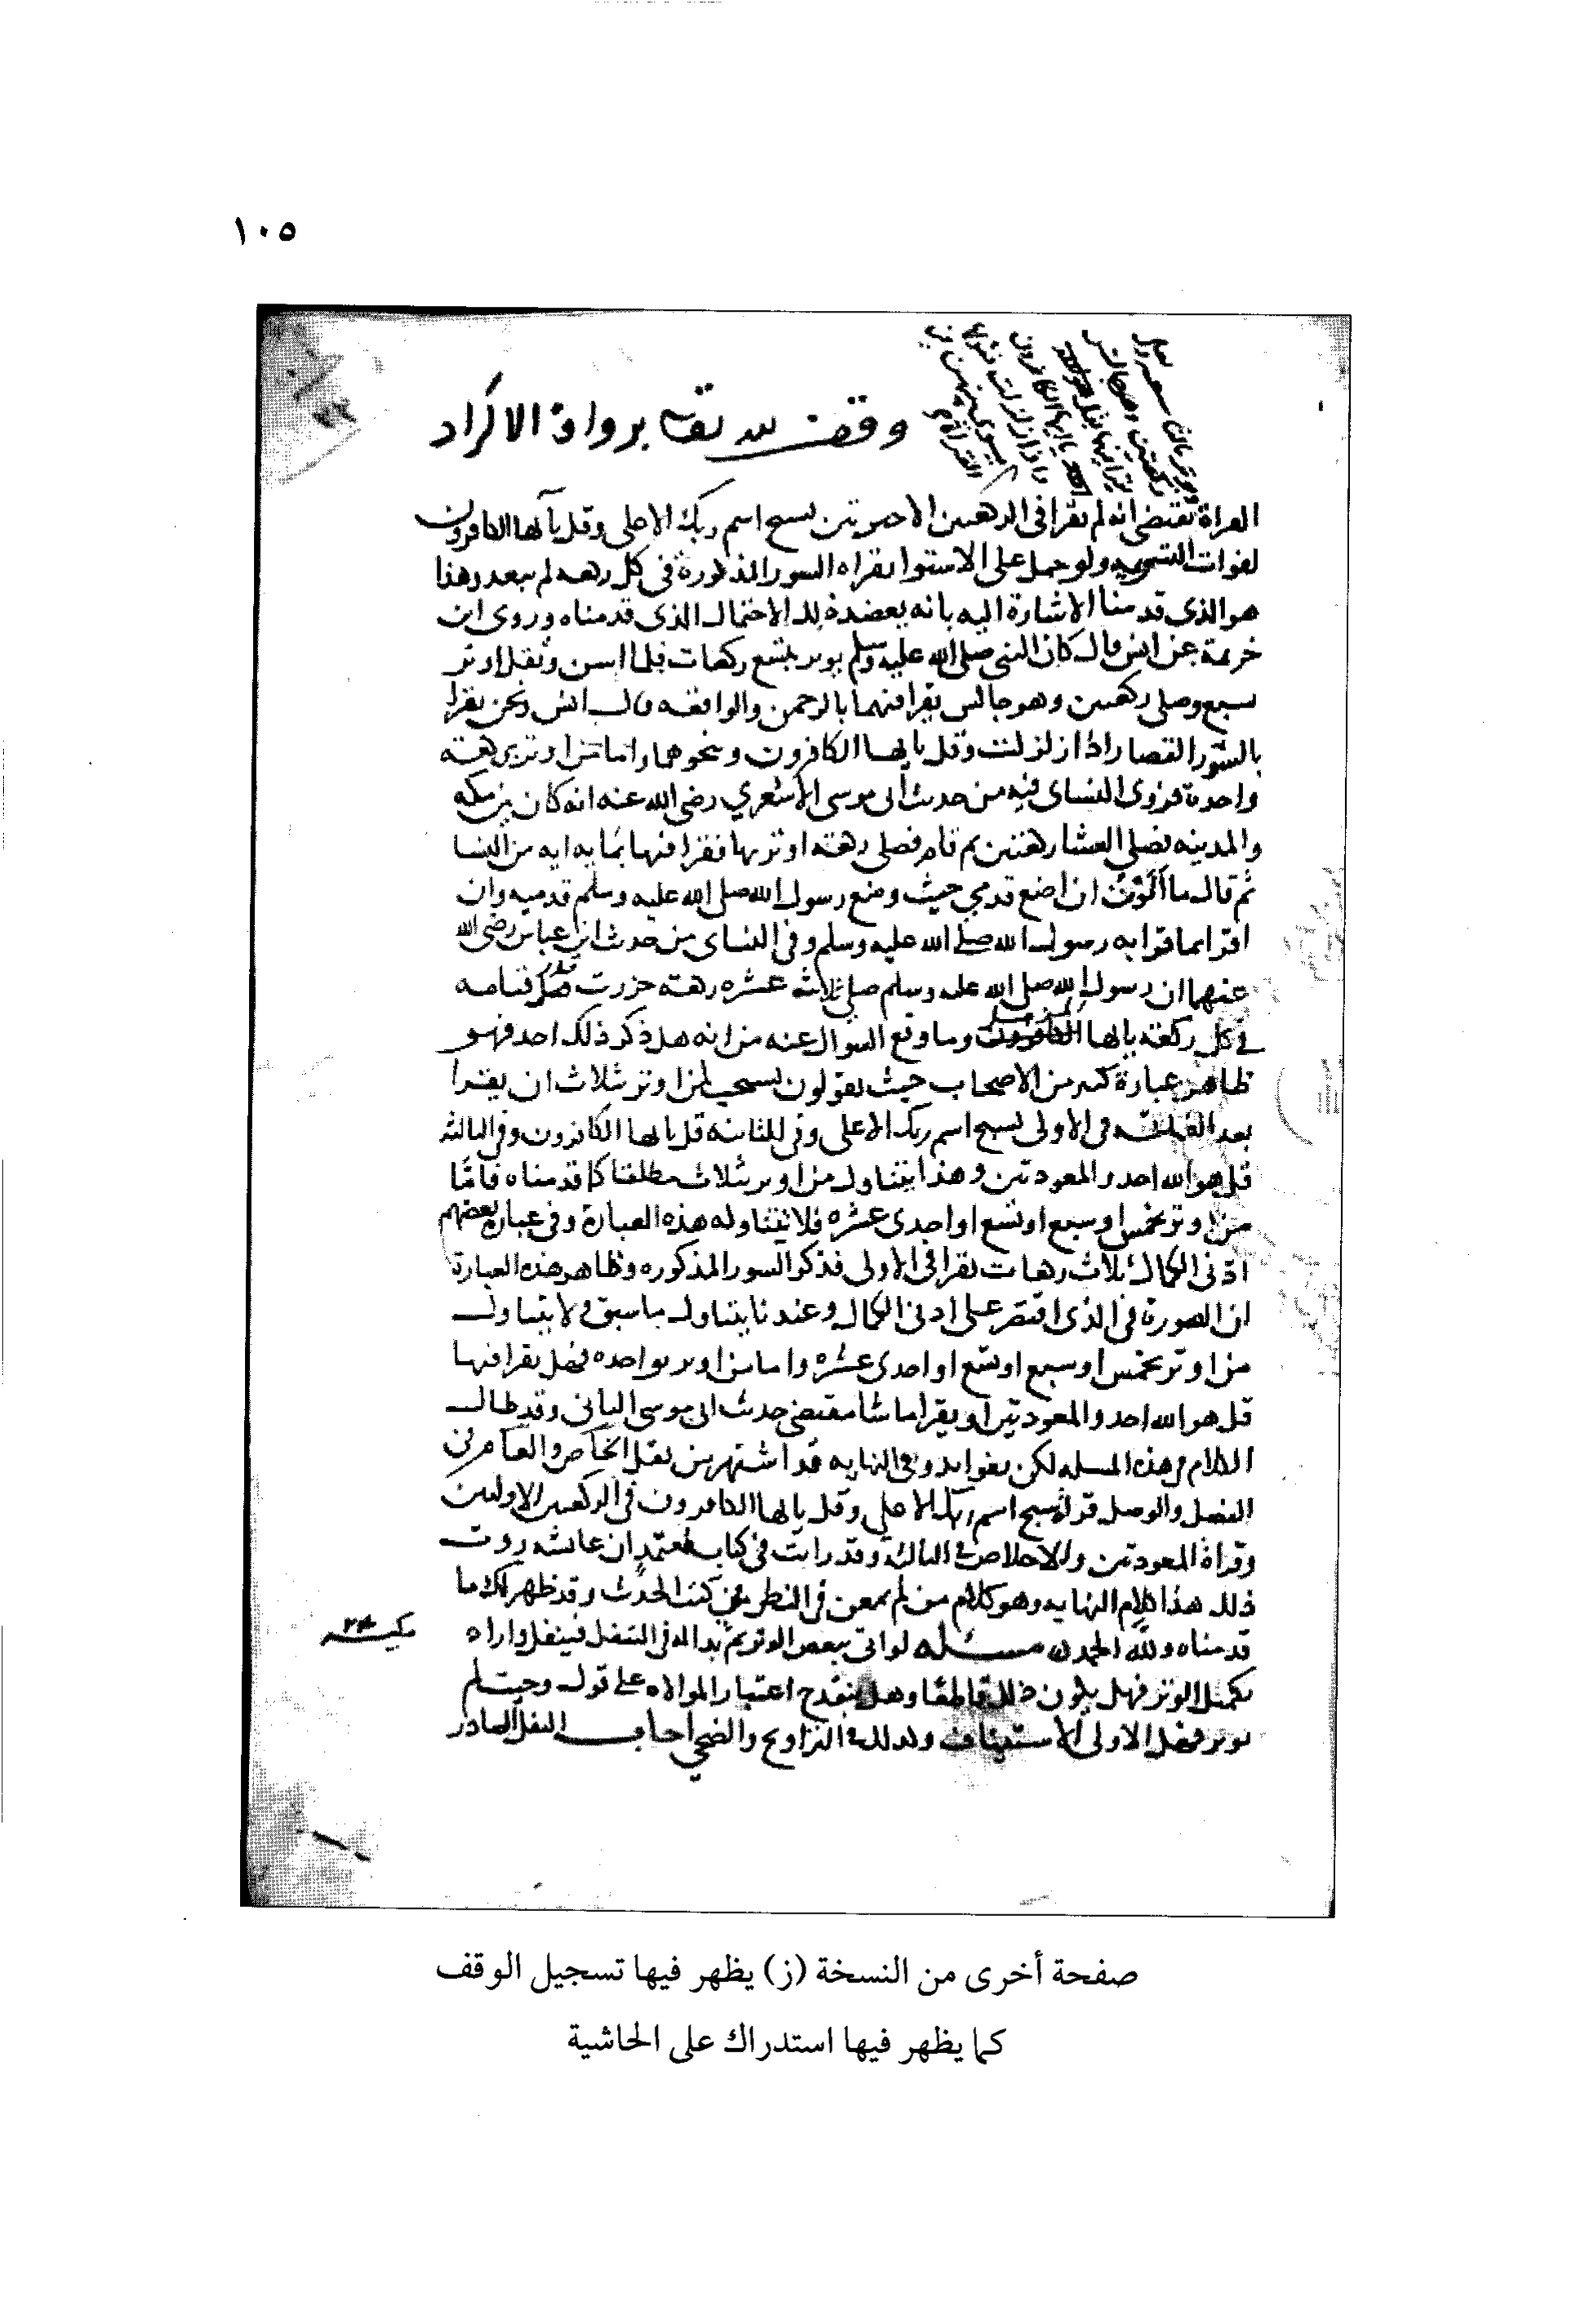 ١٠٥
وقف لله تعالى برواق الاكراد
القراة تقتضى انه لم يقرا فى الركعتين الاخيرتين بسبح اسم ربك الاعلى وقل يأيها الكافرون
لفوات التسويه ولو حمل على الاستوا بقراه السور المذكورة فى كل ركعه لم يبعد وهذا
هو الذى قدمنا الاشارة اليه بانه يعضد ذلك الاحتمال الذى قدمناه وروى ابن
خزيمة عن انس قال كان النبى صلى الله عليه وسلم يوتر بتسع ركعات فلما اسن وثقل اوتر
بسبع وصلى ركعتين وهو جالس يقرا فيهما بالرحمن والواقعه قال انس ونحن نقرا
بالسور القصار اذا زلزلت وقل يايها الكافرون ونحوهما واما من اوتر بركعته
واحدة فروى النساى فيه من حديث ابى موسى الاشعري رضى الله عنه انه كان بين مكه
والمدينه فصلى العشا ركعتين ثم قام فصلى ركعته اوتر بها فقرا فيها بمايه ايه من النسا
ثم قال ما الوت ان اضع قدمي حيث وضع رسول الله صلى الله عليه وسلم قدميه وان
اقرا بما قرا به رسول الله صلى الله عليه وسلم وفى النساى من حديث ابن عباس رضى الله
عنهما ان رسول الله صلى الله عليه وسلم صلى ثلاث عشره ركعته حزرت قدر قيامه
في كل ركعته يايها المزمل وما وقع السوال عنه من انه هل ذكر ذلك احد فهو
ظاهر عبارة كثير من الاصحاب حيث يقولون يستحب لمن اوتر بثلاث ان يقرا
بعد الفاتحه فى الاولى بسبح اسم ربك الاعلى وفى الثانيه قل يايها الكافرون وفى الثالثه
قل هو الله احد والمعوذتين وهذا يتناول من اوتر بثلاث مطلقا كما قدمناه فامّا
من اوتر بخمس او سبع او تسع او احدى عشره فلا يتناوله هذه العبارة وفى عبارة بعضهم
ادنى الكمال ثلاث ركعات يقرا فى الاولى فذكر السور المذكوره وظاهر هذه العبارة
ان الصورة فى الذى اقتصر على ادنى الكمال وعندنا يتناول ما سبق ولا يتناول
من اوتر بخمس او سبع او تسع او احدى عشره واما من اوتر بواحده فهل يقرا فيها
قل هو الله احد والمعوذتين او يقرا ما شا مقتضى حديث ابى موسى الثانى وقد طال
الكلام فى هذه المسله لكن بفوايد وفى النهايه قد اشتهر بين نقل الخاص والعام فى
الفصل والوصل قراة سبح اسم ربك الاعلى وقل يايها الكافرون فى الركعتين الاوليين
وقراة المعوذتين والاخلاص فى الثالثة وقد رايت فى كتاب معتمد ان عائشه روت
ذلك هذا كلام النهايه وهو كلام من لم يمعن فى النظر فى كتب الحديث وقد ظهر لك ما
قدمناه ولله الحمد مسئله لو اتى ببعض الوتر ثم بدا له فى التنفل فينفل واراد
تكميل الوتر فهل يكون ذلك قاطعا وهل ينقدح اعتبار الموالاه على قول وحيث لم
يوتر فهل الاولى الاستيناف وكذلك التراويح والضحى اجاب النفل الصادر
صفحة أخرى من النسخة (ز) يظهر فيها تسجيل الوقف
كما يظهر فيها استدراك على الحاشية